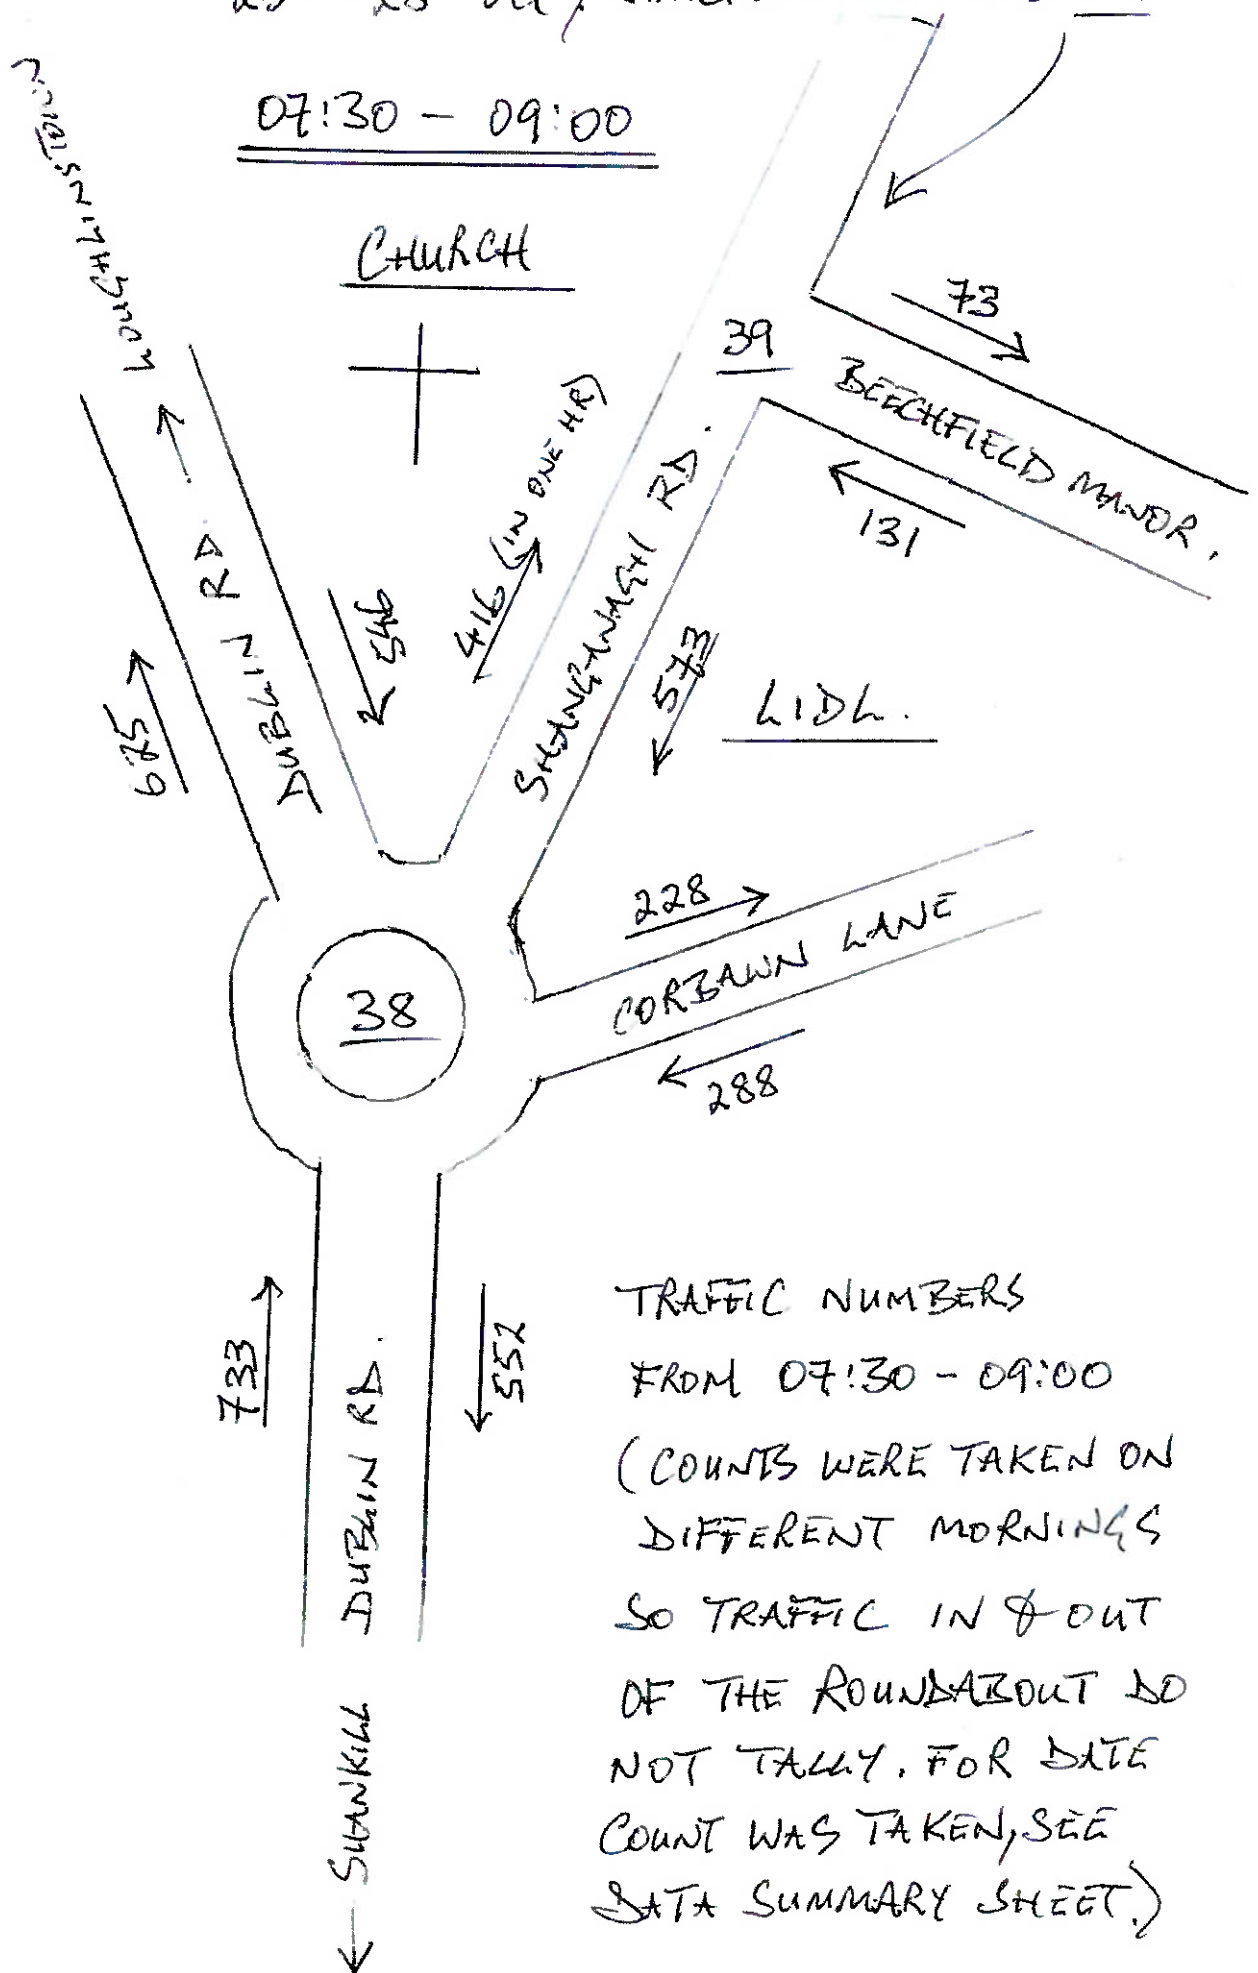 07:30 - 09:00
CHURCH
LOUGHLINSTOWN
73
39
BEECHFIELD MANOR.
131
416 (IN ONE HR)
SHANGANAGH RD.
573
LIDL.
DUBLIN RD
546
675
228
CORBAWN LANE
288
38
733
DUBLIN RD.
552
SHANKILL
TRAFFIC NUMBERS
FROM 07:30 - 09:00
(COUNTS WERE TAKEN ON
DIFFERENT MORNINGS
SO TRAFFIC IN & OUT
OF THE ROUNDABOUT DO
NOT TALLY. FOR DATE
COUNT WAS TAKEN, SEE
DATA SUMMARY SHEET.)